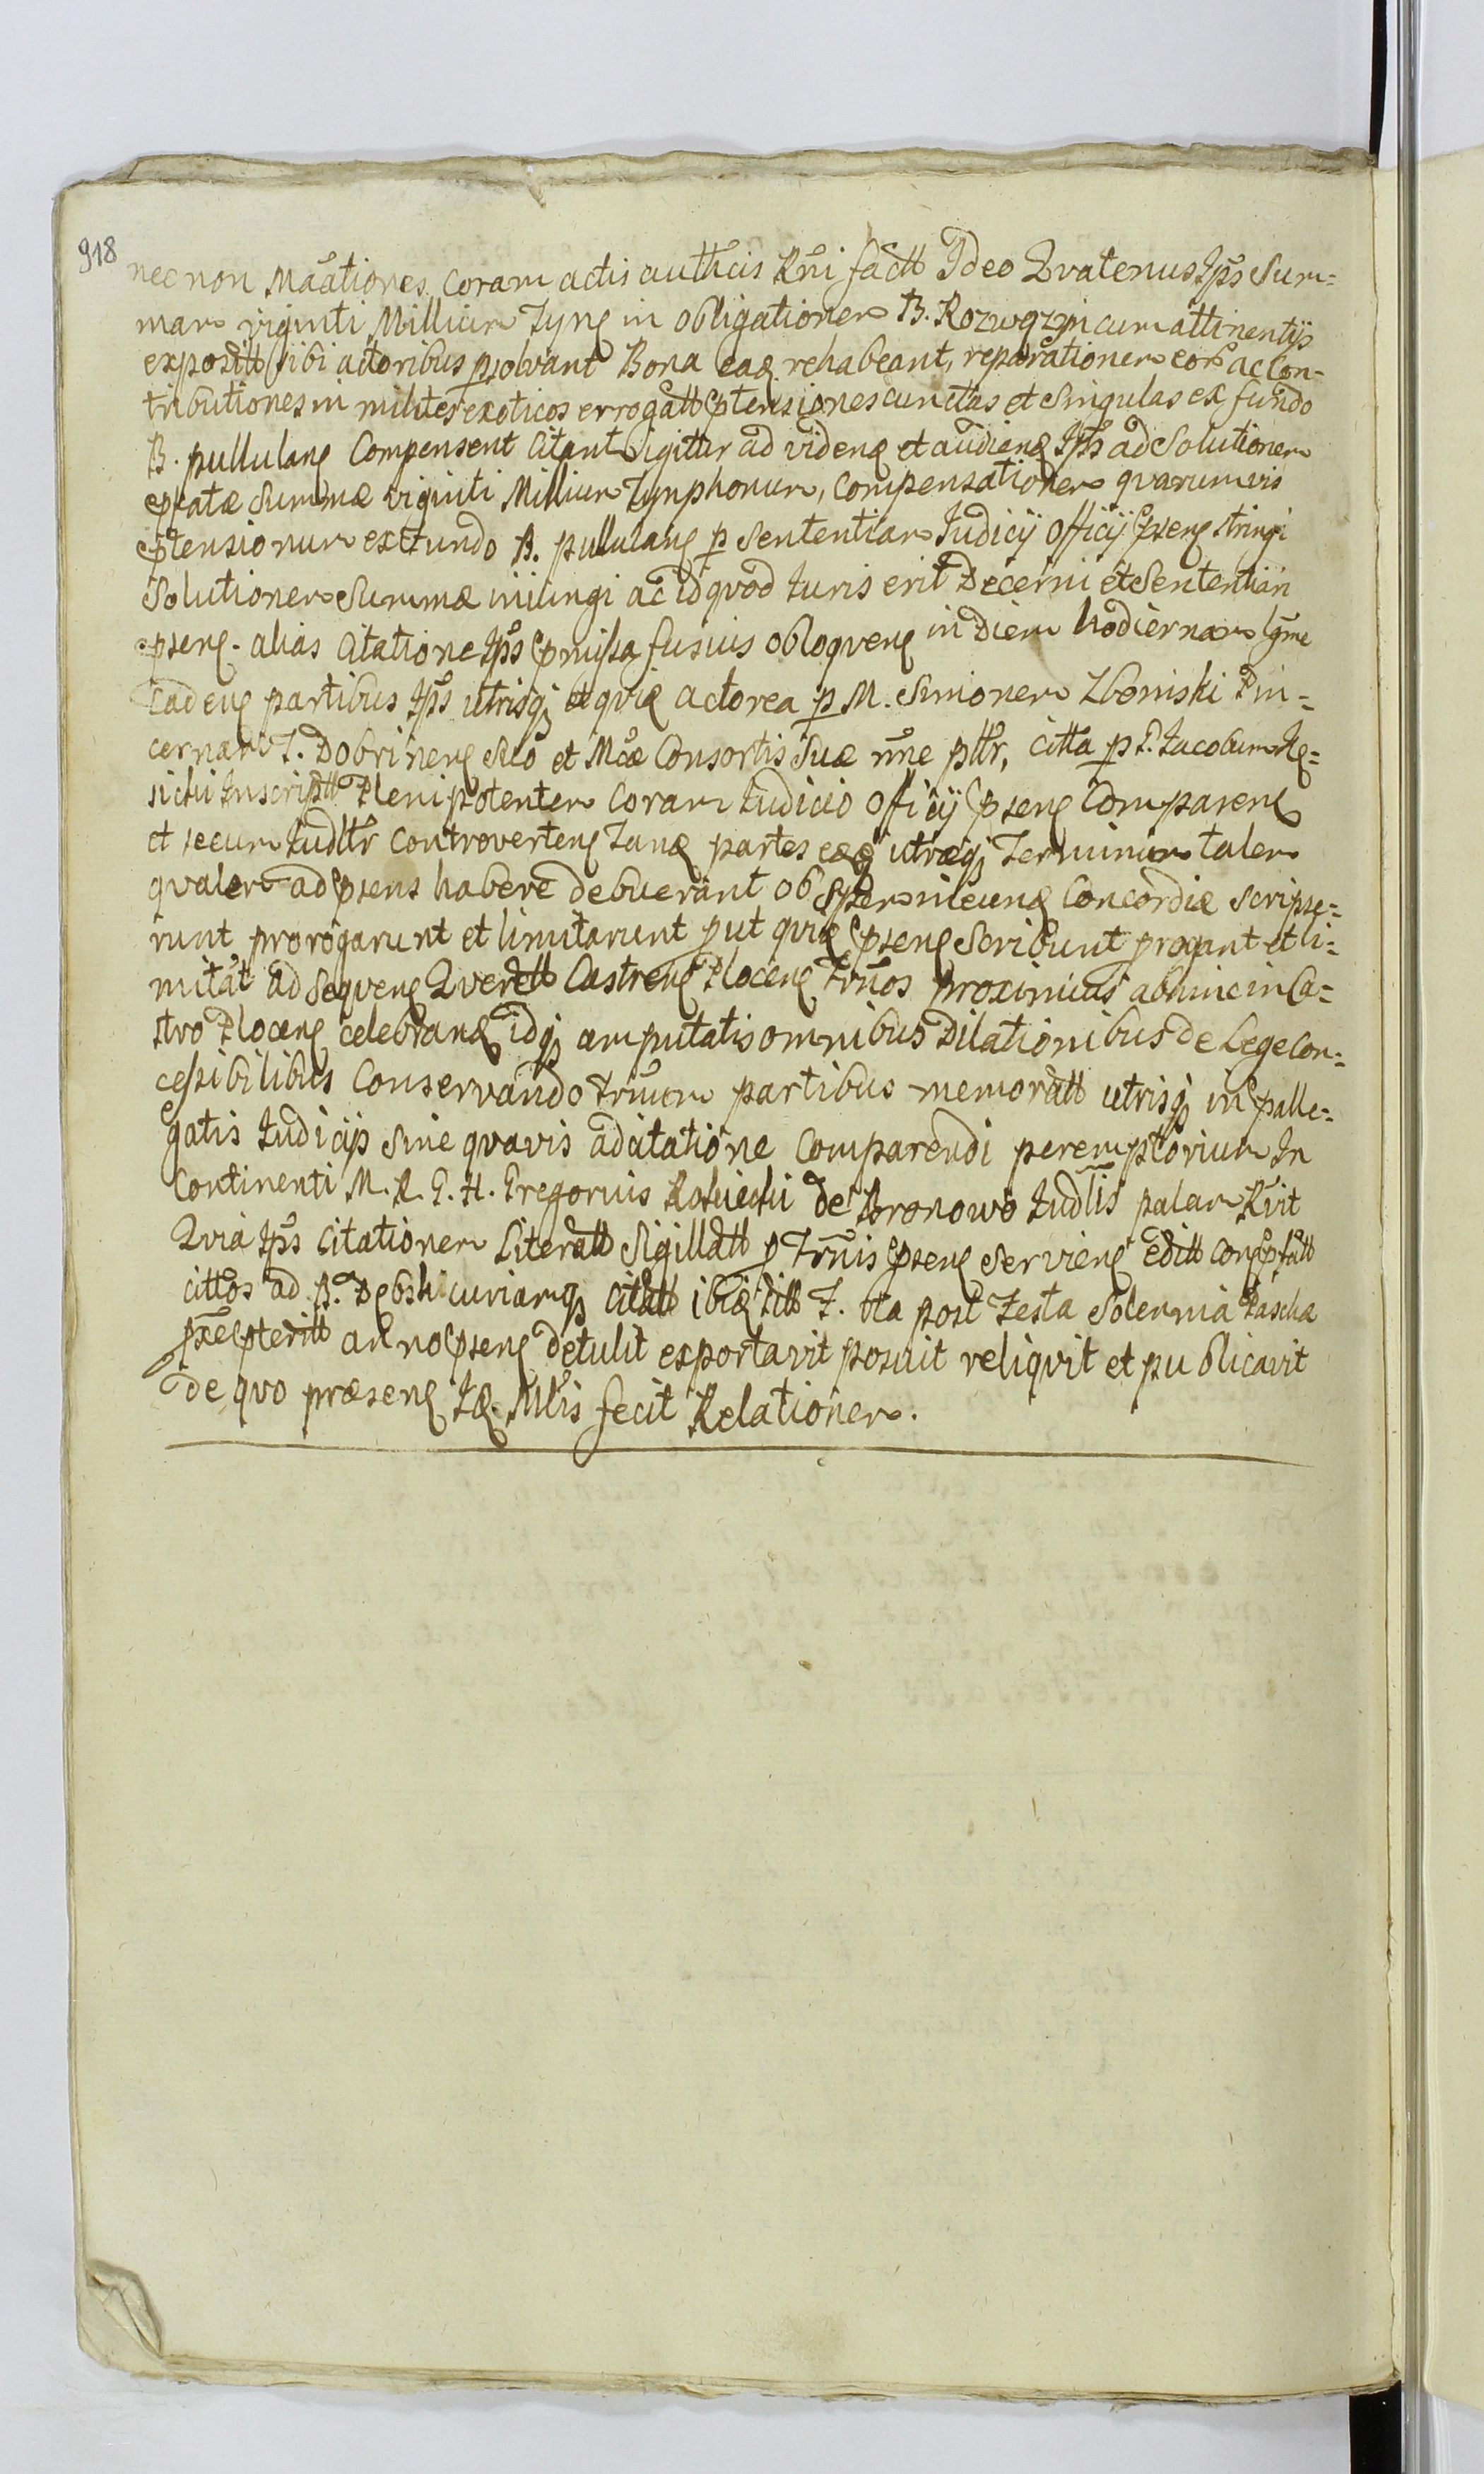 918
nec non Maãtiones coram actis authcis Rñi factt Ideo Qvatenus Ips Sum=
mam viginti Millium Tynf in obligationem B. Rozwozyn cum attinentijs
expositt sibi actoribus psolvant Bona eaq rehabeant, reparationem eor ac Con-
tributiones in milites exoticos errogatt ptensiones cunctas et Singulas ex fundo
B. pullulang Compensent Citant igittr ad videng et audieng Ips ad Solutionem
pfatæ Summæ viginti Millium Tynphonum, Compensationem qvarumvis
ptensionum ex fundo B. pullulang p Sententiam Iudicij Officij pseng stringi
Solutionem Summæ iniungi ac id qvod Iuris erit Decerni et Sententiari
pseng. alias Citatione Ips pmissa fusius obloqveng in Diem hodiernam lgme
Cadeng partibus Ips utrisq et qvid actorea p M. Simonem Zboinski Pin=
cernam T. Dobrineng Suo et Mcæ Consortis Suæ nñe pttr, citta p G. Iacobum
sicki Inscriptt Plenipotentem Coram Iudicio Officij pseng Compareng
et secum Iudltr Controverteng Tang partes eæq utræq Terminum talem
qvalem ad psens habere debuerant ob Spem ineung Concordiæ Scripse=
runt prorogarunt et limitarunt put qvid pseng Scribunt progant et li=
mitat ad Seqveng Qverell Castreng Ploceng Trños proximius abhinc in Ca=
stro Ploceng celebrang idq amputatis omnibus Dilationibus de Lege Con=
cessibilibus Conservando trñum partibus memoratt utrisq in palle=
gatis Iudicijs Sine qvavis adcitatione Comparendi peremptorium In
Continenti M. R. G. H. Gregorius Rościecki de Bronowo Iudlis palam Rvit
Qvia Ips Citationem Literatt Sigillatt p Trñis pseng Servieng editt
cittos ad B. Dębsk curiamq citatt ibid Ditt F. IIa post Festa Solennia Pascha
pxe pteritt anno pseng detulit exportavit posuit reliqvit et publicavit
de qvo præseng Id. Mtris fecit Relationem.